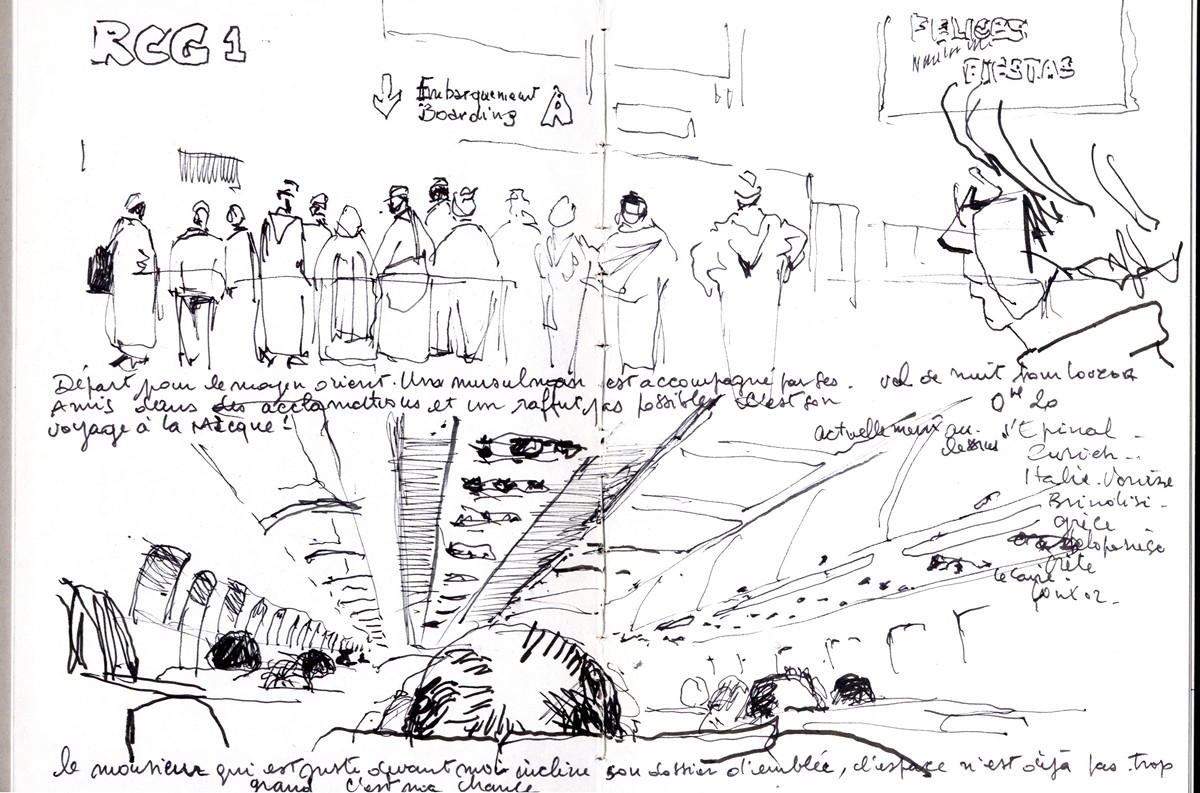 RCG 1
FELICES
FIESTAS
Embarquement A
Boarding
Départ pour le moyen orient. Un musulman est accompagné par ses
Amis dans des acclamations et un raffut pas possible. C'est son
voyage à la Mecque !
vol de nuit pour Louxor
0H 20
actuellement au-
dessus d'Epinal -
Zurich -
Italie. Venise
Brindisi -
grèce
Peloponèse
Crète
le Caire -
Louxor -
le monsieur qui est juste devant moi incline son dossier d'emblée, l'espace n'est déjà pas trop
grand c'est ma chance